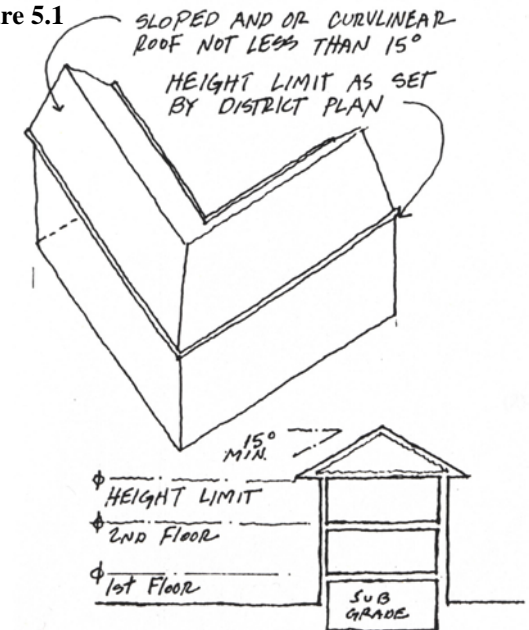 re 5.1
SLOPED AND OR CURVLINEAR
ROOF NOT LESS THAN 15°
HEIGHT LIMIT AS SET
BY DISTRICT PLAN
15°
MIN.
HEIGHT LIMIT
2ND FLOOR
1st FLOOR
SUB
GRADE